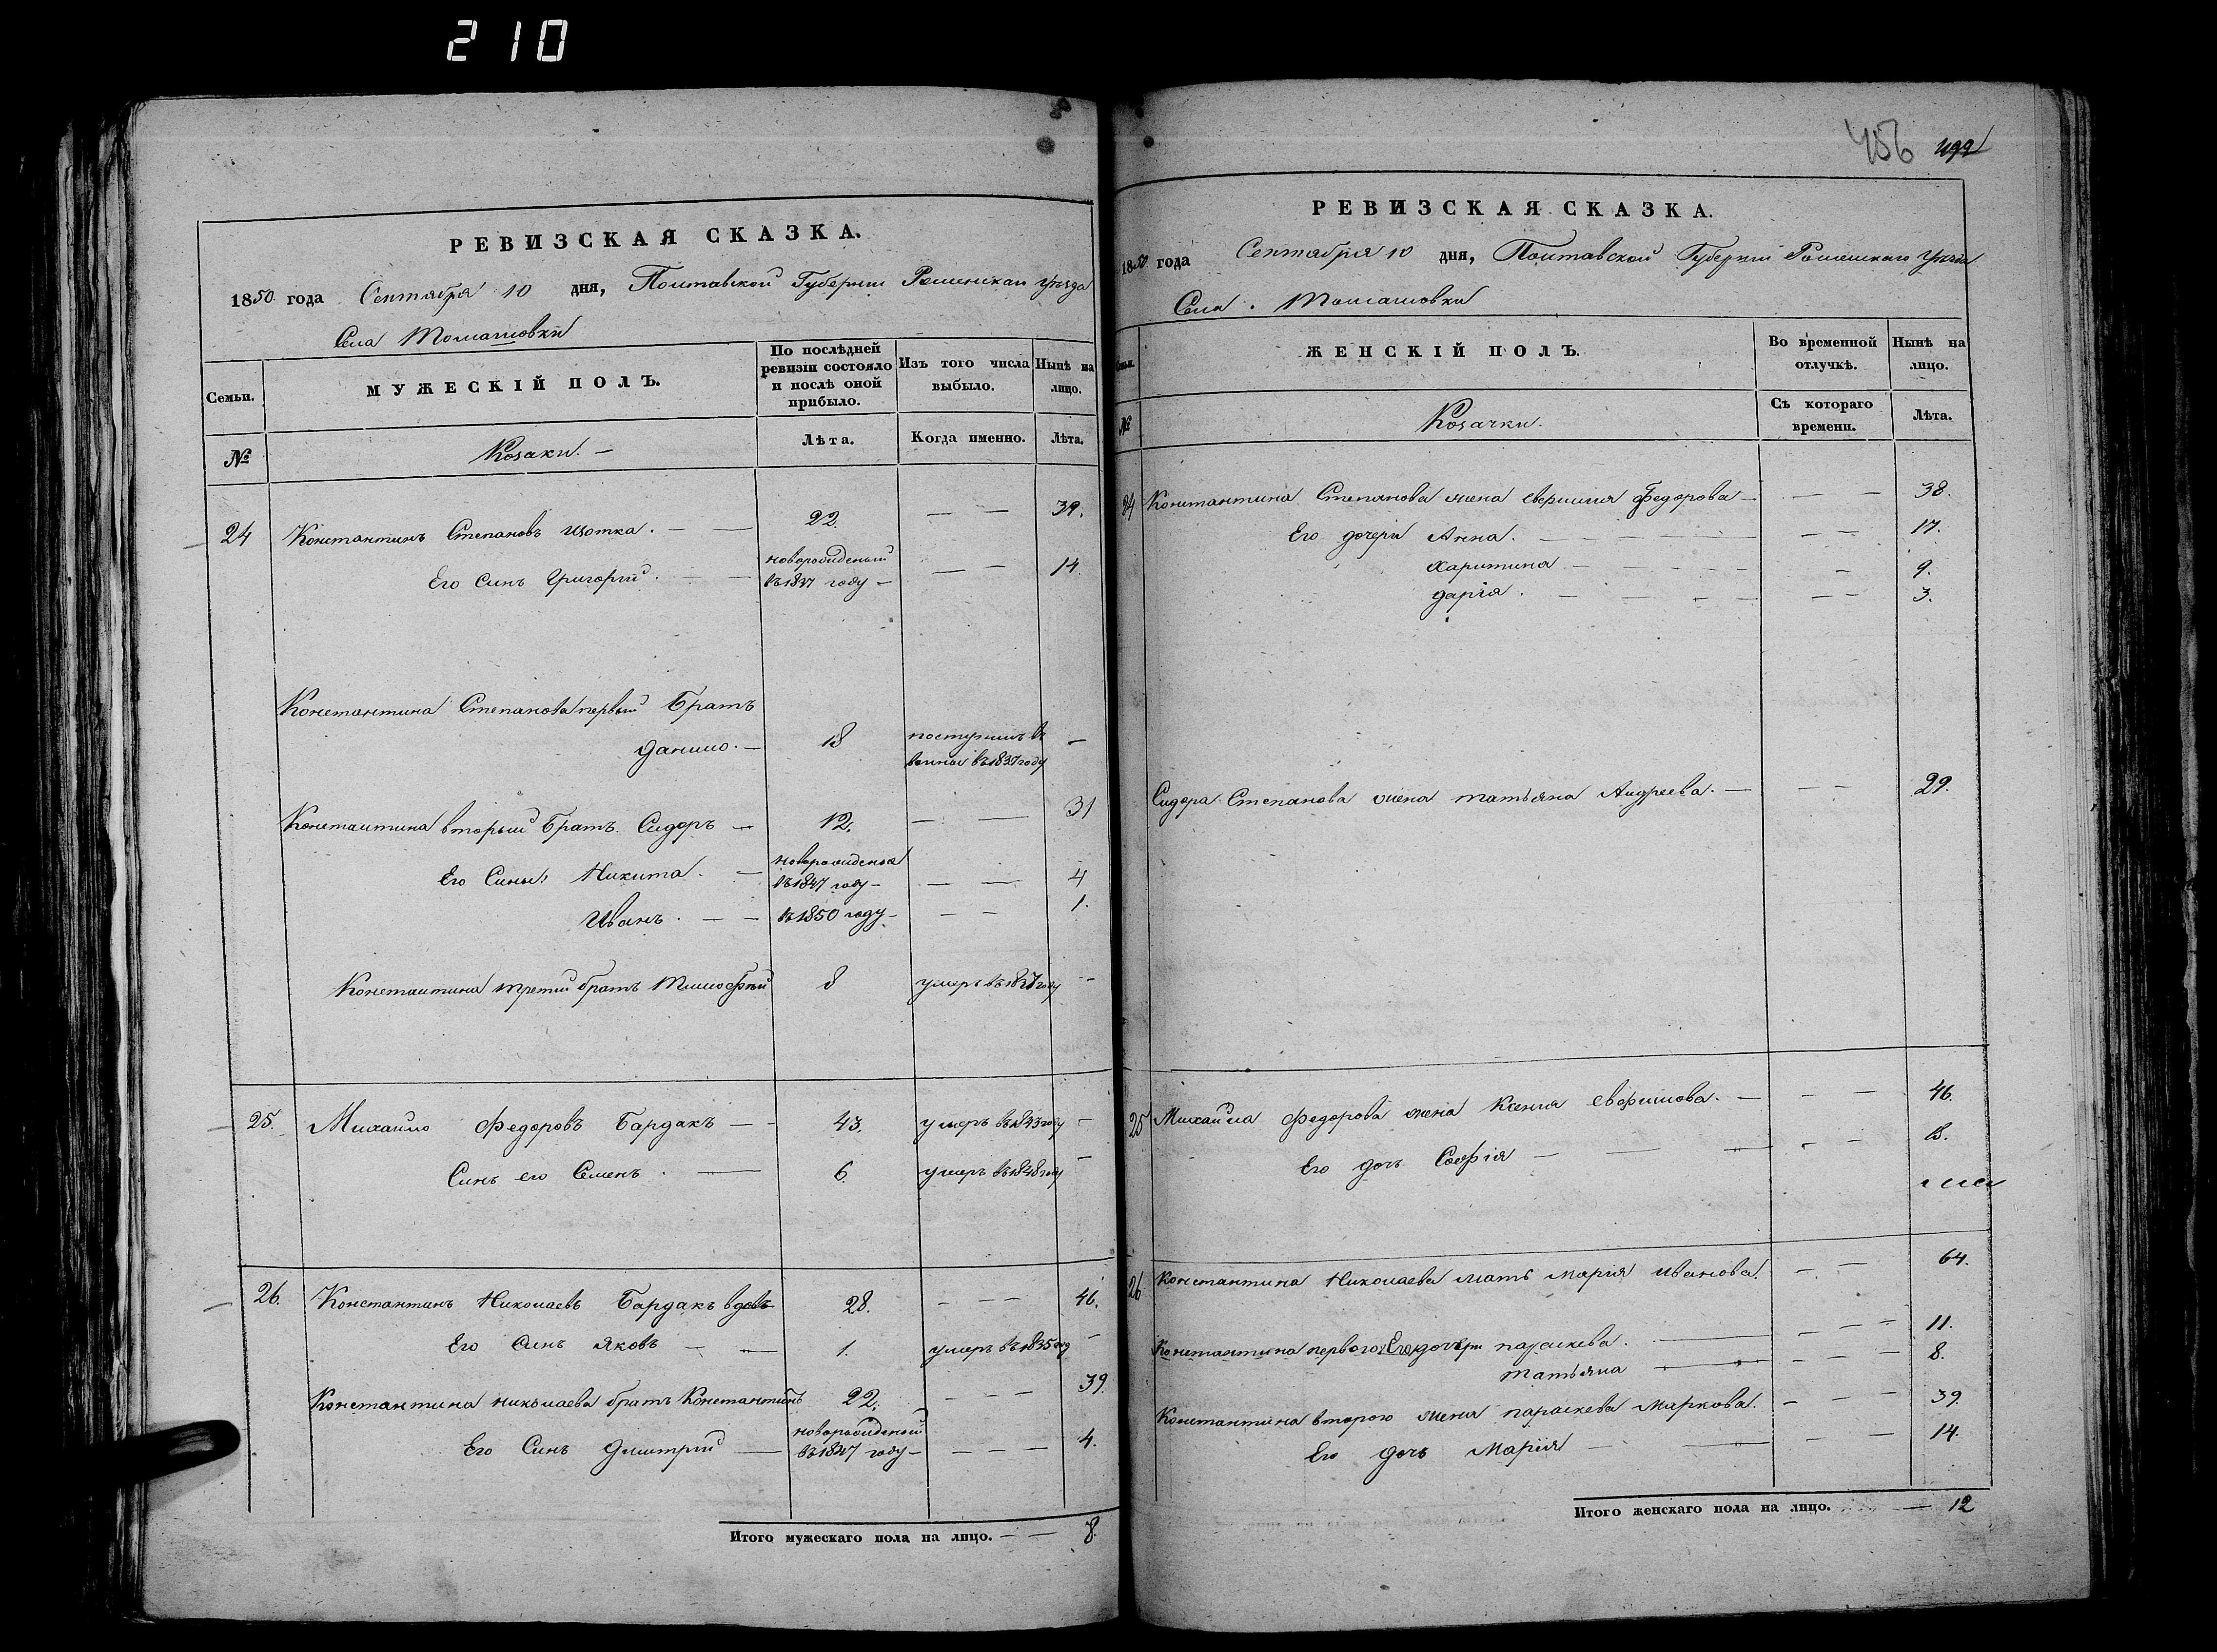 210
РЕВИЗСКАЯ СКАЗКА.
1850 года Сентября 10 дня, Полтавской Губернии Роменскаго уѣзда
Села Томашовки
Семьи.
МУЖЕСКІЙ ПОЛЪ.
По послѣдней ревизіи состояло и послѣ оной прибыло.
Изъ того числа выбыло.
Нынѣ на лицо.
№
Козаки. —
Лѣта.
Когда именно.
Лѣта.
24 Константинъ Степановъ Щотка. — — 22. — — 39.
Его Синъ Григорий. — — новорожденый въ 1837 году — — — 14.
Константина Степанова первый Братъ
Данило. — 18 поступилъ въ 1837 году —
Константина вторый Братъ Сидоръ — 12. — — 31
Его Сины: Никита. — новорожденые въ 1847 году — — — 4
Иванъ. — — въ 1850 году — — — 1.
Константина третий братъ Тимофѣй 8 умеръ въ 1837 году —
25. Михайло Федоровъ Бардакъ — — 43. умеръ въ 1843 году —
Синъ его Семенъ. — 6. умеръ въ 1848 году —
26. Константинъ Николаевъ Бардакъ вдовъ 28. — — — 46.
Его Синъ Яковъ — — 1. умеръ въ 1835 году —
Константина николаева братъ Константинъ 22. — — — 39.
Его Синъ Димитрий — новорожденый въ 1847 году — — — — 4.
Итого мужескаго пола на лицо. — — 8.
456 499
РЕВИЗСКАЯ СКАЗКА.
1850 года Сентября 10 дня, Полтавской Губернии Роменскаго уѣзда
Села. Томашовки
Семьи.
ЖЕНСКІЙ ПОЛЪ.
Во временной отлучкѣ.
Нынѣ на лицо.
№
Козачки.
Съ котораго времени.
Лѣта.
24 Константина Степанова жена Евфимия Федорова — — — 38.
Его дочери Анна. — — — 17.
Харитина — — — 9.
Дария. — — — 3.
Сидора Степанова жена татьяна Андреева. — — — 29.
25 Михайла Федорова жена Ксения Евфимова. — — — 46.
Его дочь София — — — 13.
26 Константина Николаева мать Мария Иванова. — — 64.
Константина первого Его дочери параскева. — — — 11.
Татьяна — — — 8.
Константина второго жена параскева Маркова. — — 39.
Его дочь Мария — — — 14.
Итого женскаго пола на лицо. — 12